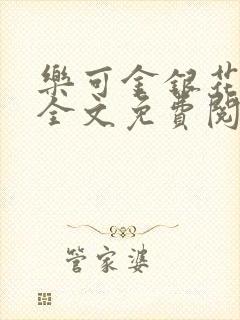 樂可金銀花
全文免費閱
管家婆